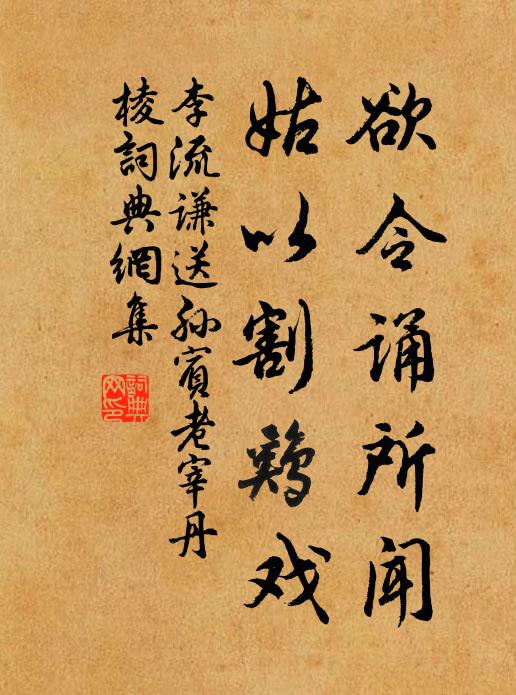 欲令诵所闻
姑以割鷄戏
李流谦送孙宾老宰丹
棱詞典網集
詞典
网印